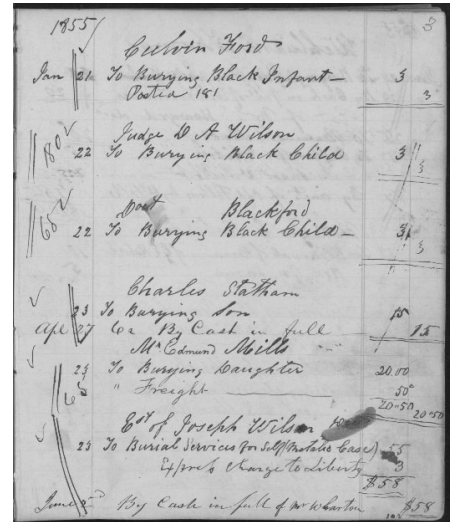 1855
3
Culvin Ford
Jan 21 To Burying Black Infant — 3
Posted 181 3
Judge D A Wilson
180 22 To Burying Black Child 3
3
Doct Blackford
65 22 To Burying Black Child — 3
3
Charles Statham
23 To Burying Son 15
Apl 27 Ca By Cash in full 15
Mr Edmund Mills
23 To Burying Daughter 20.00
65 " Freight 50
20-50 20-50
Est of Joseph Wilson
23 To Burial Services for Self (Metalic Case) 55
Express Charge to Liberty 3
$58
June 2nd By Cash in full of Mr Wharton $58